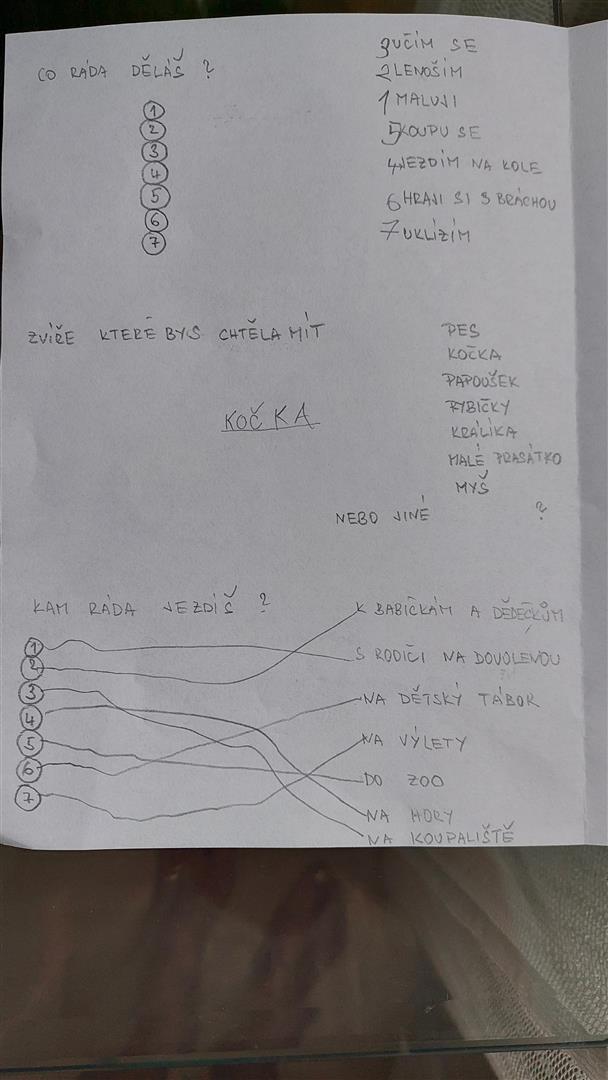 CO RÁDA DĚLÁŠ ?
1
2
3
4
5
6
7
3 UČÍM SE
2 LENOŠÍM
1 MALUJI
5 KOUPU SE
4 JEZDÍM NA KOLE
6 HRAJI SI S BRÁCHOU
7 UKLÍZÍM
ZVÍŘE KTERÉ BYS CHTĚLA MÍT
KOČKA
PES
KOČKA
PAPOUŠEK
RYBIČKY
KRÁLÍKA
MALÉ PRASÁTKO
MYŠ
NEBO JINÉ ?
KAM RÁDA JEZDÍŠ ?
1
2
3
4
5
6
7
K BABIČKÁM A DĚDEČKŮM
S RODIČI NA DOVOLENOU
NA DĚTSKÝ TÁBOR
NA VÝLETY
DO ZOO
NA HORY
NA KOUPALIŠTĚ